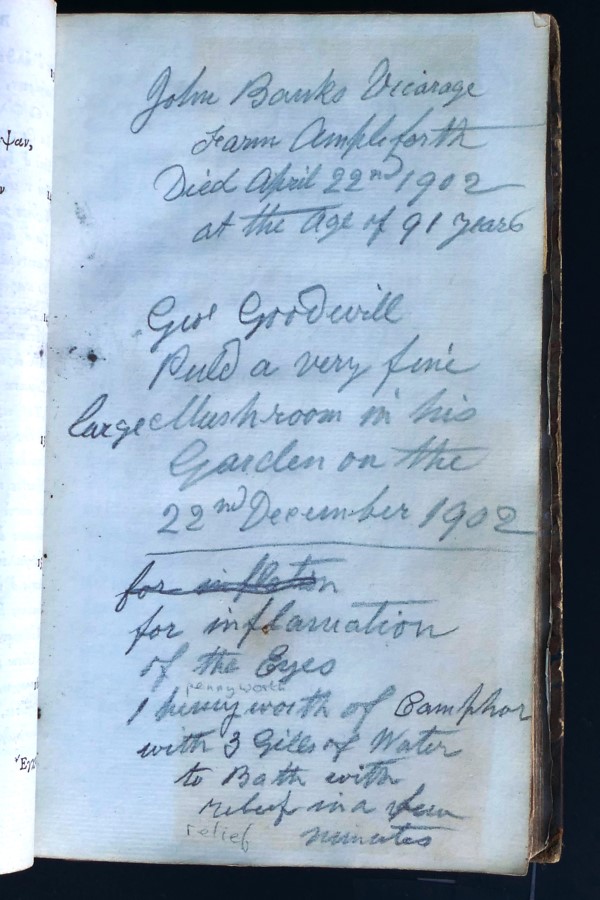 John Banks Vicarage
Farm Ampleforth
Died April 22nd 1902
at the Age of 91 years
Geo Goodwill
Puld a very fine
large Mushroom in his
Garden on the
22nd December 1902
for
for inflamation
of the Eyes
pennyworth
1 pennyworth of Camphor
with 3 Gills of Water
to Bath with
relief in a few
relief minutes